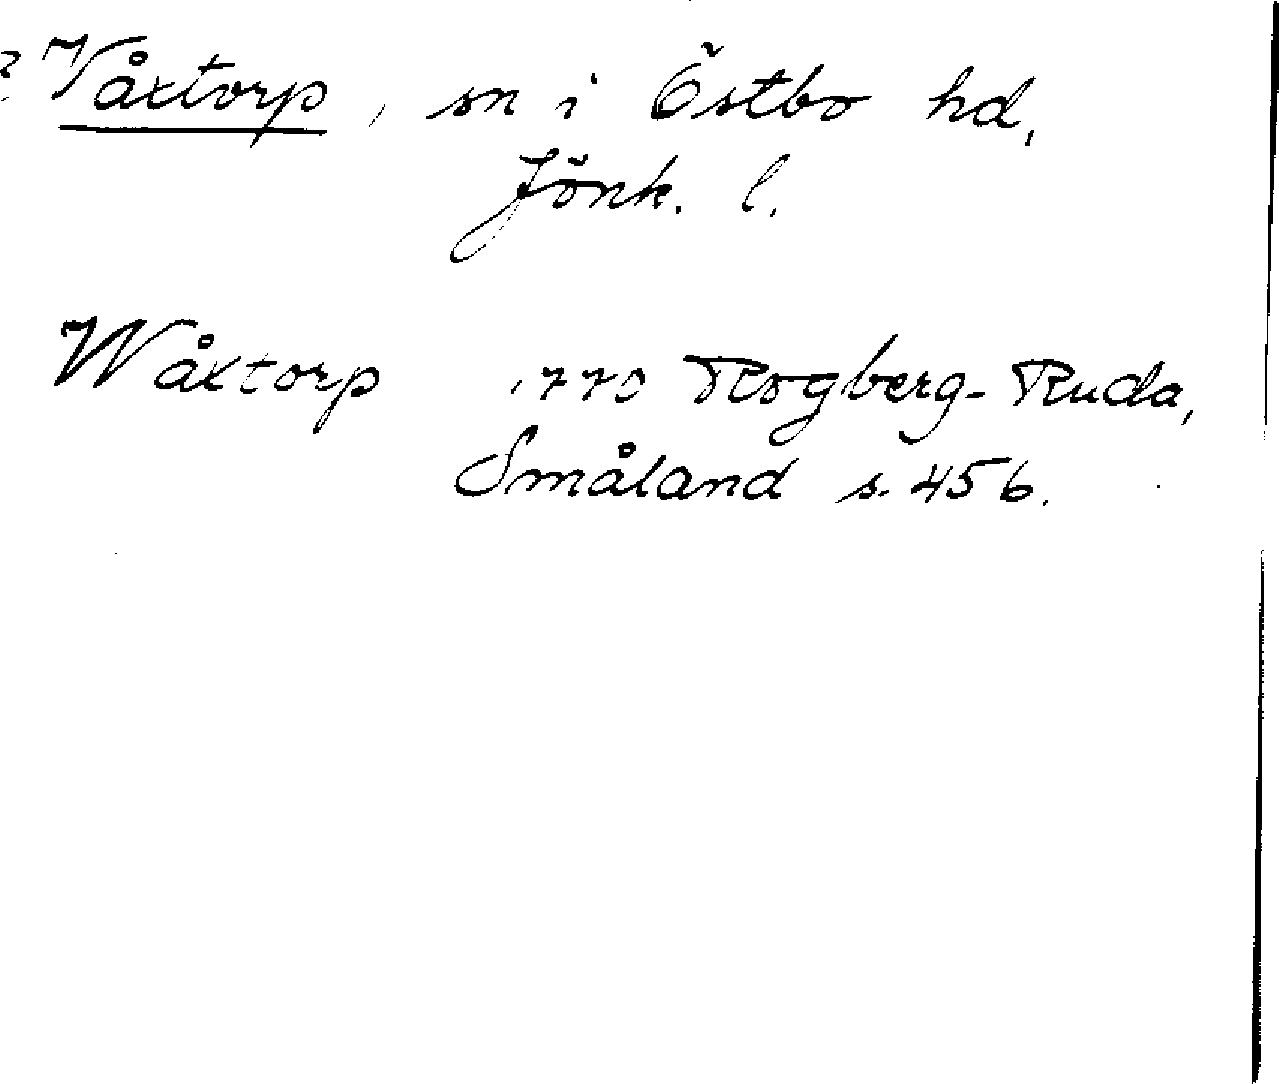 ? Våxtorp, sn i Östbo hd,
Jönk. l.
Wåxtorp 1770 Rogberg-Ruda,
Småland s. 456.